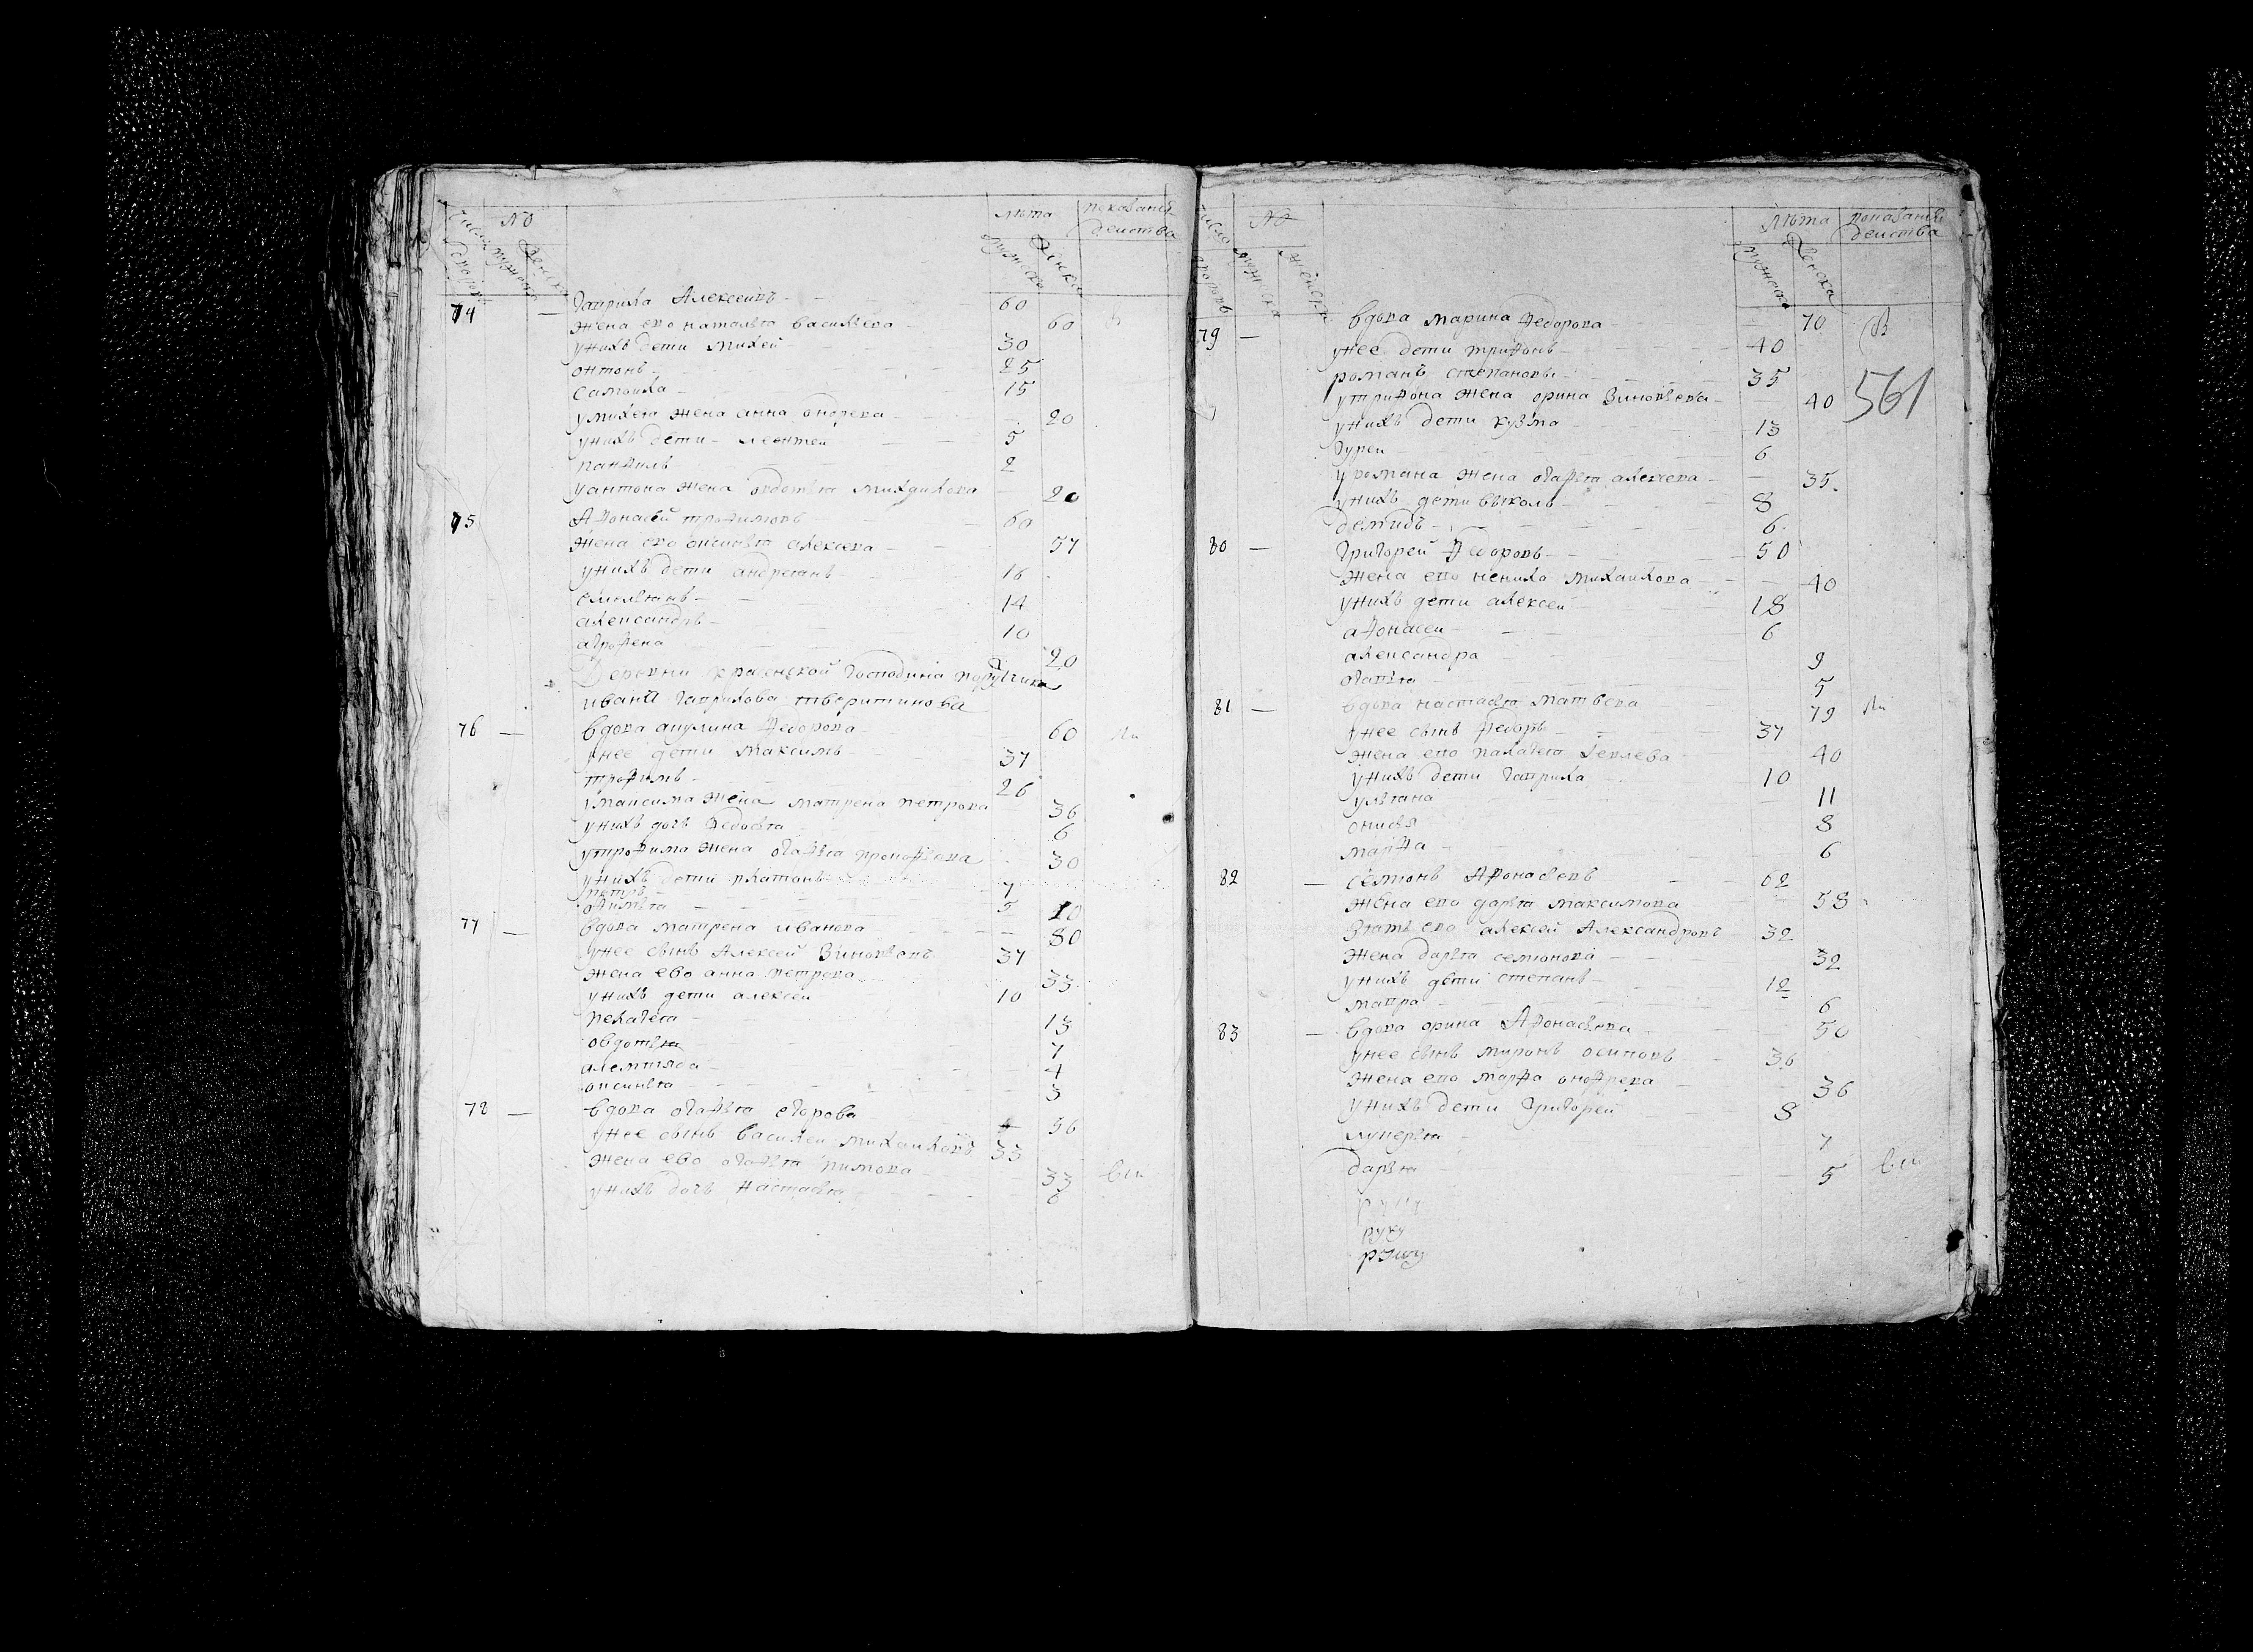 № лѣта показаніе
действа
число дворовъ мужеска женска мужеска женска
74 — Гаврила Алексеивъ — 60
жена ево наталья васильева — 60
унихъ дети михей — 30
онтонъ — 25
самоила — 15
умихея жена анна ондрева — 20
унихъ дети леонтей — 5
панфилъ 2
уантона жена овдотья михаилова — 20
75 Афонасей трофимовъ — 60
жена ево оксинья алексева — 57
унихъ дети андреянъ — 16
емельянъ — 14
александръ — 10
агрофена 20
Деревни красенской Господина порутчика
ивана гаврилова тверитинова
76 — вдова акулина Федорова — 60
унее дети максимъ 37
трофимъ — 26
умаксима жена матрена петрова 36
унихъ дочь Федосья 6
утрофима жена огафья прокофьева 30
унихъ дети платонъ
петръ — 7
офимья 5 10
77 — вдова матрена иванова — 80
унее сынъ Алексей Зиновьевъ 37
жена ево анна петрова — 33
унихъ дети алексей 10
пелагея — 13
овдотья 7
алемтяса — 4
оксинья — 3
78 — вдова огафья егорова 56
унее сынъ василей михаиловъ 33
жена ево огафья кимова — 33
унихъ дочь настасья 6
№ лѣта показаніе
действа
число дворовъ мужеска женска мужеска женска
79 — вдова марина Федорова — 70
унее дети трифонъ — 40
романъ степановы — 35
561
утрифона жена орина Зиновьева — 40
унихъ дети кузма 13
гурей 6
уромана жена огафья алексева — 35
унихъ дети выколъ — 8
демидъ — 6
80 — Григорей Федоровъ — 50
жена ево ненила михаилова — 40
унихъ дети алексей 18
афонасей — 6
александра 9
огапья — 5
81 — вдова настасья матвева 79
унее сынъ Федоръ — 37
жена ево палагея 40
унихъ дети гаврила 10
ульяна 11
онисья 8
марфа — 6
82 — семионъ Афонасьевъ 62
жена ево дарья максимова 58
зять ево алексей Александровъ 32
жена дарья семионова — 32
унихъ дети степанъ — 12
мавра 6
83 — вдова орина Афонасьева — 50
унее сынъ миронъ осиповъ 36
жена ево марфа онофрева 36
унихъ дети Григорей 8
лукерья — 7
дарья 5
руку